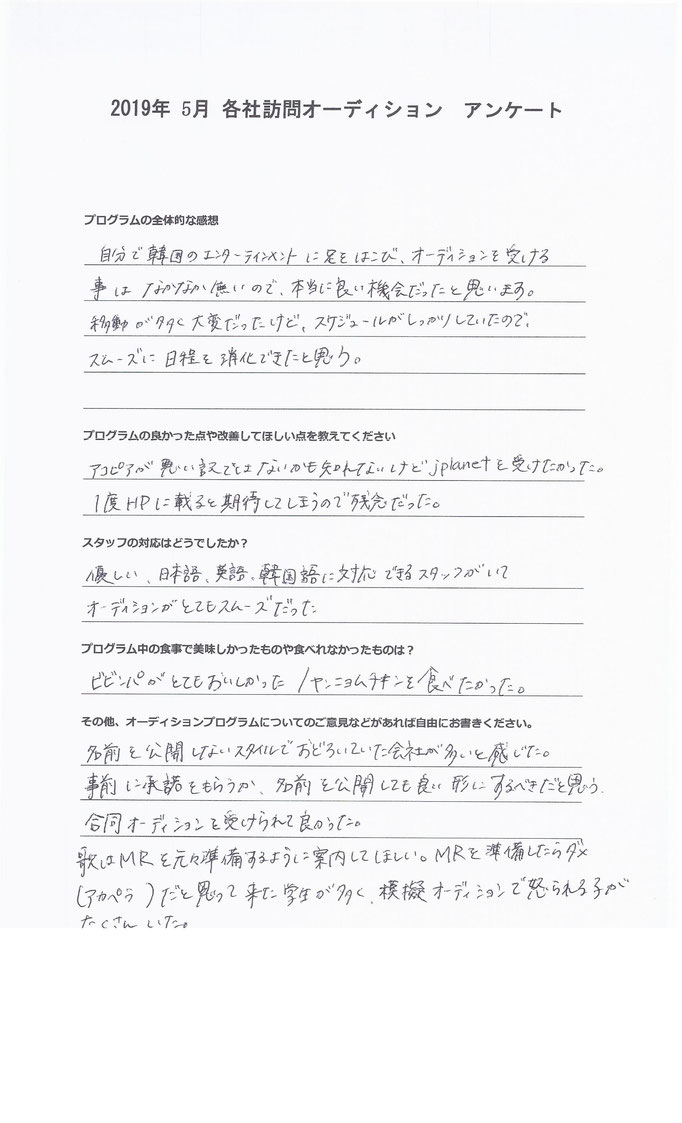 2019年 5月 各社訪問オーディション　アンケート
プログラムの全体的な感想
自分で韓国のエンターテインメントに足をはこび、オーディションを受ける
事は なかなか無いので、本当に良い機会だったと思います。
移動が多く大変だったけど、スケジュールがしっかりしていたので、
スムーズに日程を消化できたと思う。
プログラムの良かった点や改善してほしい点を教えてください
アコピアが悪い訳ではないかも知れないけどjplanetを受けたかった。
1度HPに載ると期待してしまうので残念だった。
スタッフの対応はどうでしたか？
優しい、日本語、英語、韓国語に対応できるスタッフがいて
オーディションがとてもスムーズだった
プログラム中の食事で美味しかったものや食べれなかったものは？
ビビンパがとてもおいしかった / ヤンニョムチキンを食べたかった。
その他、オーディションプログラムについてのご意見などがあれば自由にお書きください。
名前を公開しないスタイルでおどろいていた会社が多いと感じた。
事前に承諾をもらうか、名前を公開しても良い形にするべきだと思う.
合同オーディションを受けられて良かった。
歌はMRを元々準備するように案内してほしい。MRを準備したらダメ
(アカペラ)だと思って来た学生が多く、模擬オーディションで怒られる子が
たくさんいた。